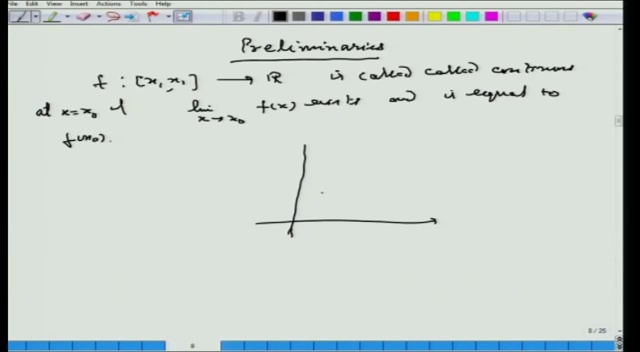 File Edit View Insert Actions Tools Help
Preliminaries
f : [x₁, x₁] → ℝ is called called continuous
at x=x₀ if lim x→x₀ f(x) exists and is equal to
f(x₀).
8 / 25
8